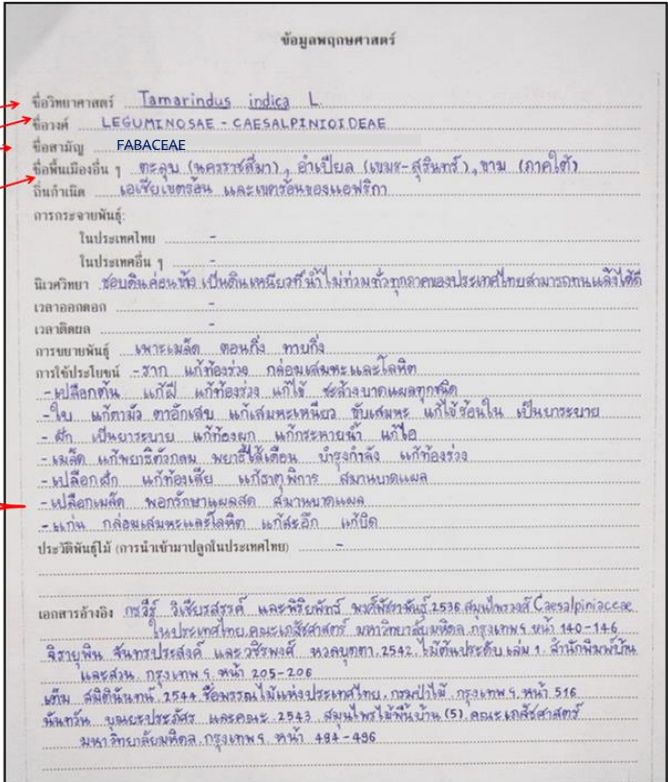 ข้อมูลพฤกษศาสตร์
ชื่อวิทยาศาสตร์ Tamarindus indica L.
ชื่อวงศ์ LEGUMINOSAE - CAESALPINIOIDEAE
ชื่อสามัญ FABACEAE
ชื่อพื้นเมืองอื่น ๆ ตะลูบ (นครราชสีมา), อำเปียล (เขมร-สุรินทร์), ขาม (ภาคใต้)
ถิ่นกำเนิด เอเชียเขตร้อน และเขตร้อนของแอฟริกา
การกระจายพันธุ์:
ในประเทศไทย -
ในประเทศอื่น ๆ -
นิเวศวิทยา ชอบดินค่อนข้าง เป็นดินเหนียวที่น้ำไม่ท่วมทั่วทุกภาคของประเทศไทยสามารถทนแล้งได้ดี
เวลาออกดอก -
เวลาติดผล -
การขยายพันธุ์ เพาะเมล็ด ตอนกิ่ง ทาบกิ่ง
การใช้ประโยชน์ -ราก แก้ท้องร่วง กล่อมเสมหะและโลหิต
-เปลือกต้น แก้ฝี แก้ท้องร่วง แก้ไข้ ชะล้างบาดแผลทุกชนิด
-ใบ แก้ตามัว ตาอักเสบ แก้เสมหะเหนียว ขับเสมหะ แก้ไข้ร้อนใน เป็นยาระบาย
- ฝัก เป็นยาระบาย แก้ท้องผูก แก้กระหายน้ำ แก้ไอ
-เมล็ด แก้พยาธิตัวกลม พยาธิไส้เดือน บำรุงกำลัง แก้ท้องร่วง
-เปลือกฝัก แก้ท้องเสีย แก้ธาตุพิการ สมานบาดแผล
-เปลือกเมล็ด พอกรักษาแผลสด สมานบาดแผล
-แก่น กล่อมเสมหะและโลหิต แก้สะอึก แก้บิด
ประวัติพันธุ์ไม้ (การนำเข้ามาปลูกในประเทศไทย) -
เอกสารอ้างอิง กรวีร์ วิเชียรสรรค์ และพิริยพัทธ์ พงศ์พัชราพันธุ์.2536.สมุนไพรวงศ์ Caesalpiniaceae
ในประเทศไทย.คณะเภสัชศาสตร์ มหาวิทยาลัยมหิดล.กรุงเทพฯ.หน้า 140-146
จิรายุพิน จันทรประสงค์ และวชิรพงศ์ หวลบุตตา.2542.ไม้ต้นประดับ เล่ม 1. สำนักพิมพ์บ้าน
และสวน.กรุงเทพฯ.หน้า 205-206
เต็ม สมิตินันทน์.2544.ชื่อพรรณไม้แห่งประเทศไทย.กรมป่าไม้.กรุงเทพฯ.หน้า 516
นันทวัน บุณยะประภัศร และคณะ.2543.สมุนไพรไม้พื้นบ้าน (5).คณะเภสัชศาสตร์
มหาวิทยาลัยมหิดล.กรุงเทพฯ.หน้า 494-496